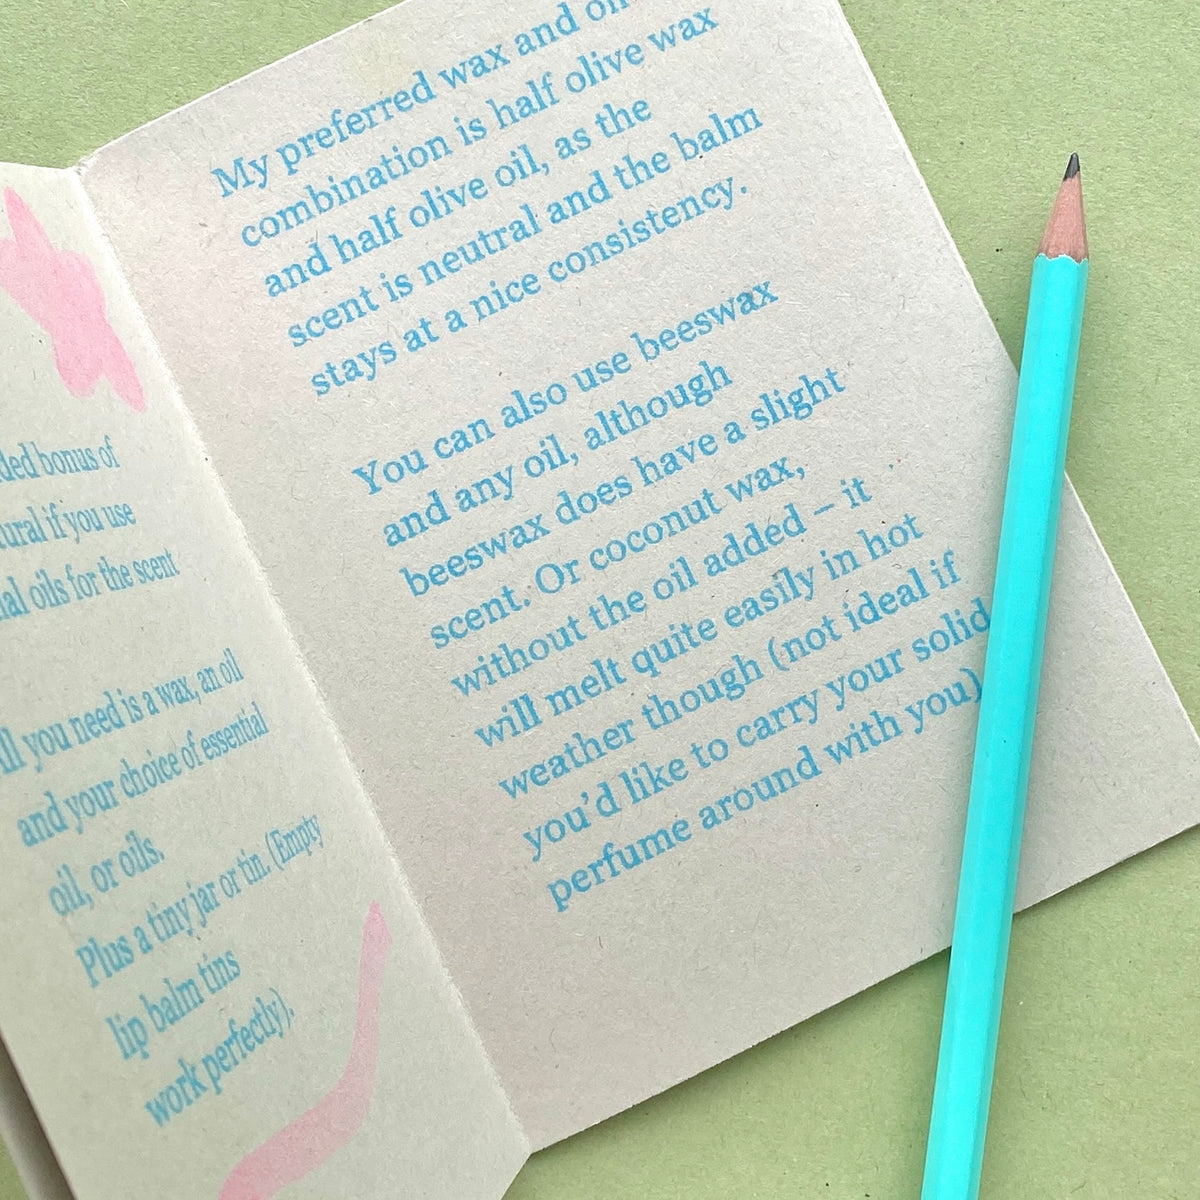 ded bonus of
tural if you use
ial oils for the scent
All you need is a wax, an oil
and your choice of essential
oil, or oils.
Plus a tiny jar or tin. (Empty
lip balm tins
work perfectly).
My preferred wax and oil
combination is half olive wax
and half olive oil, as the
scent is neutral and the balm
stays at a nice consistency.
You can also use beeswax
and any oil, although
beeswax does have a slight
scent. Or coconut wax,
without the oil added – it
will melt quite easily in hot
weather though (not ideal if
you’d like to carry your solid
perfume around with you)